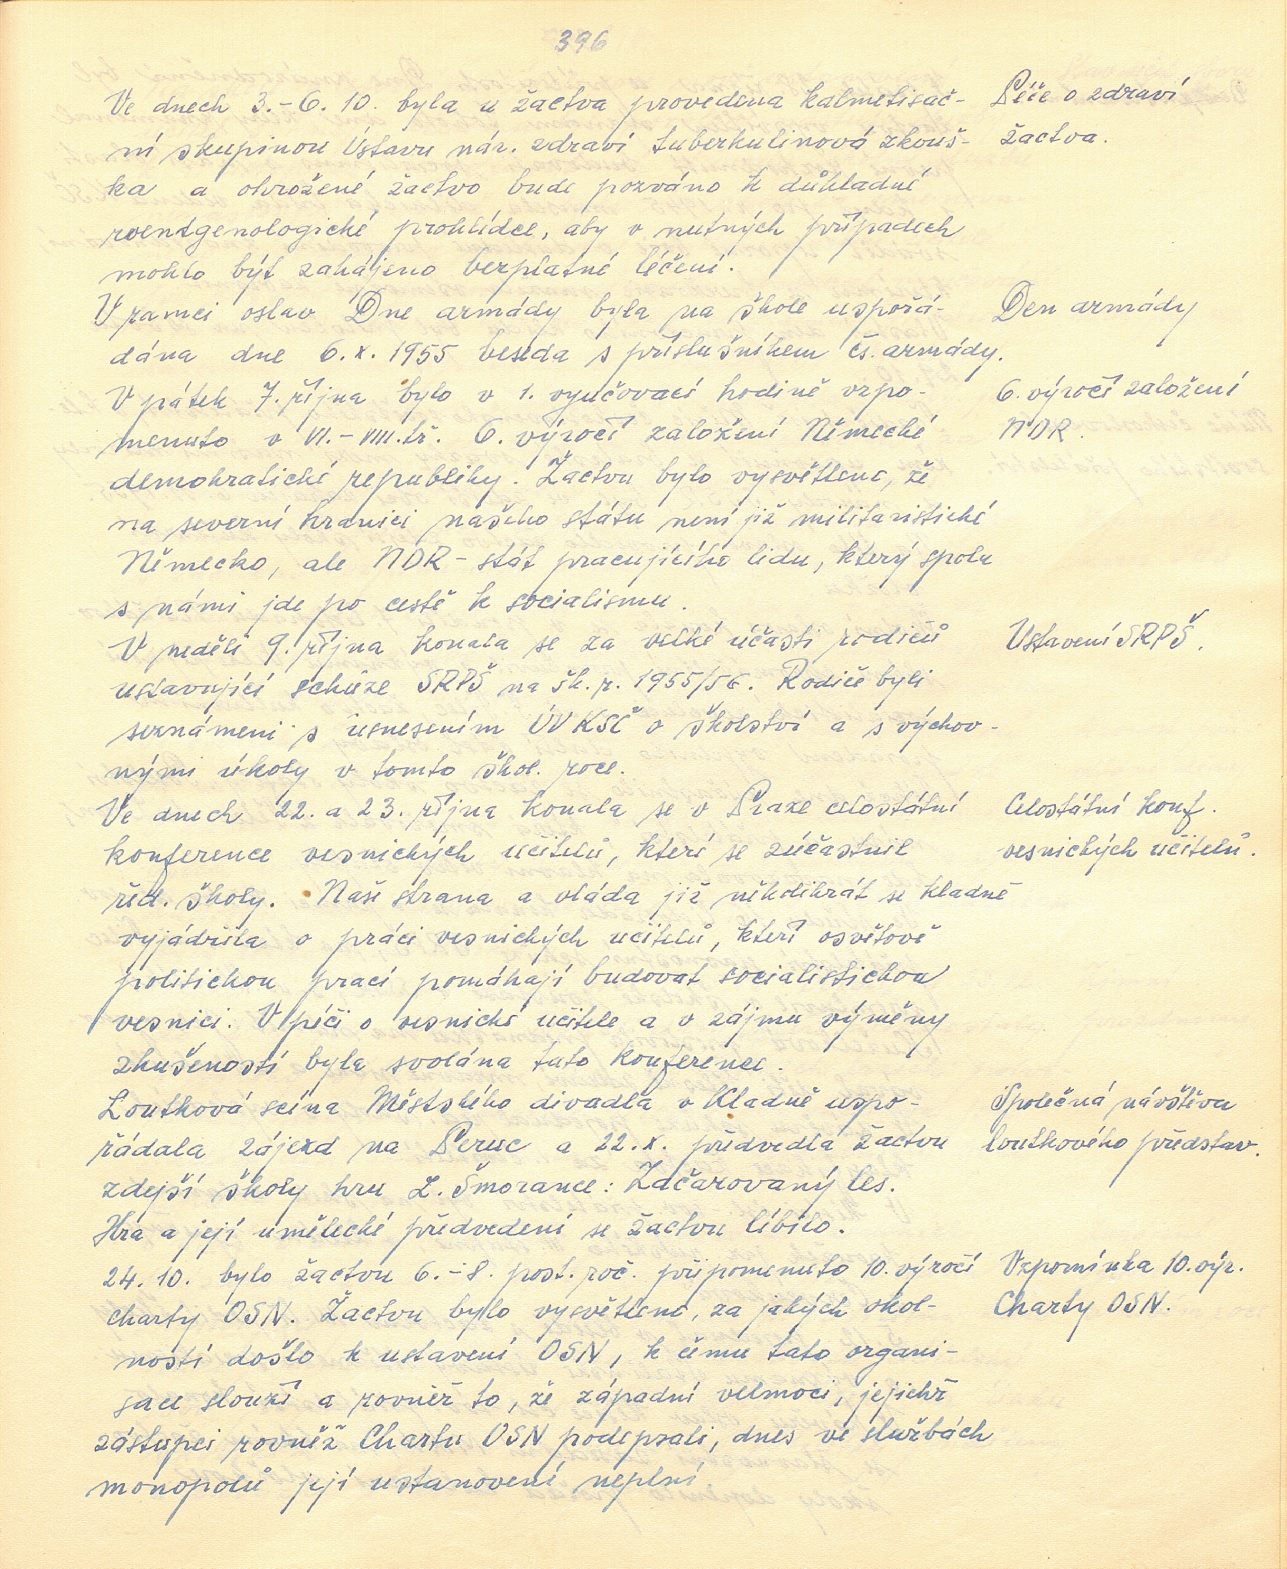 396
Ve dnech 3.-6. 10. byla u žactva provedena kalmetisač-
ní skupinou Ústavu nár. zdraví tuberkulinová zkouš-
ka a ohrožené žactvo bude pozváno k důkladné
roentgenologické prohlídce, aby v nutných případech
mohlo být zahájeno bezplatné léčení.
Péče o zdraví
žactva.
V ramci oslav Dne armády byla na škole uspořá-
dána dne 6.X. 1955 beseda s příslušníkem čs. armády.
Den armády
V pátek 7. října bylo v 1. vyučovací hodině vzpo-
menuto v VI.-VIII.tř. 6. výročí založení Německé
demokratické republiky. Žactvu bylo vysvětleno, že
na severní hranici našeho státu není již militaristické
Německo, ale NDR - stát pracujícího lidu, který spolu
s námi jde po cestě k socialismu.
6. výročí založení
NDR.
V neděli 9. října konala se za velké účasti rodičů
ustavující schůze SRPŠ na šk. r. 1955/56. Rodiče byli
seznámeni s usnesením ÚV KSČ o školství a s výchov-
nými úkoly v tomto škol. roce.
Ustavení SRPŠ.
Ve dnech 22. a 23. října konala se v Praze celostátní
konference vesnických učitelů, které se zúčastnil
řed. školy. Naše strana a vláda již několikrát se kladně
vyjádřila o práci vesnických učitelů, kteří osvětově
politickou prací pomáhají budovat socialistickou
vesnici. V péči o vesnické učitele a v zájmu výměny
zkušeností byla svolána tato konference.
Celostátní konf.
vesnických učitelů.
Loutková scéna Městského divadla v Kladně uspo-
řádala zájezd na Peruc a 22.X. předvedla žactvu
zdejší školy hru L. Šmorance: Začarovaný les.
Hra a její umělecké předvedení se žactvu líbilo.
Společná návštěva
loutkového představ.
24. 10. bylo žactvu 6.-8. post. roč. připomenuto 10. výročí
charty OSN. Žactvu bylo vysvětleno, za jakých okol-
ností došlo k ustavení OSN, k čemu tato organi-
sace slouží a rovněž to, že západní velmoci, jejichž
zástupci rovněž Chartu OSN podepsali, dnes ve službách
monopolů její ustanovení neplní.
Vzpomínka 10. výr.
Charty OSN.